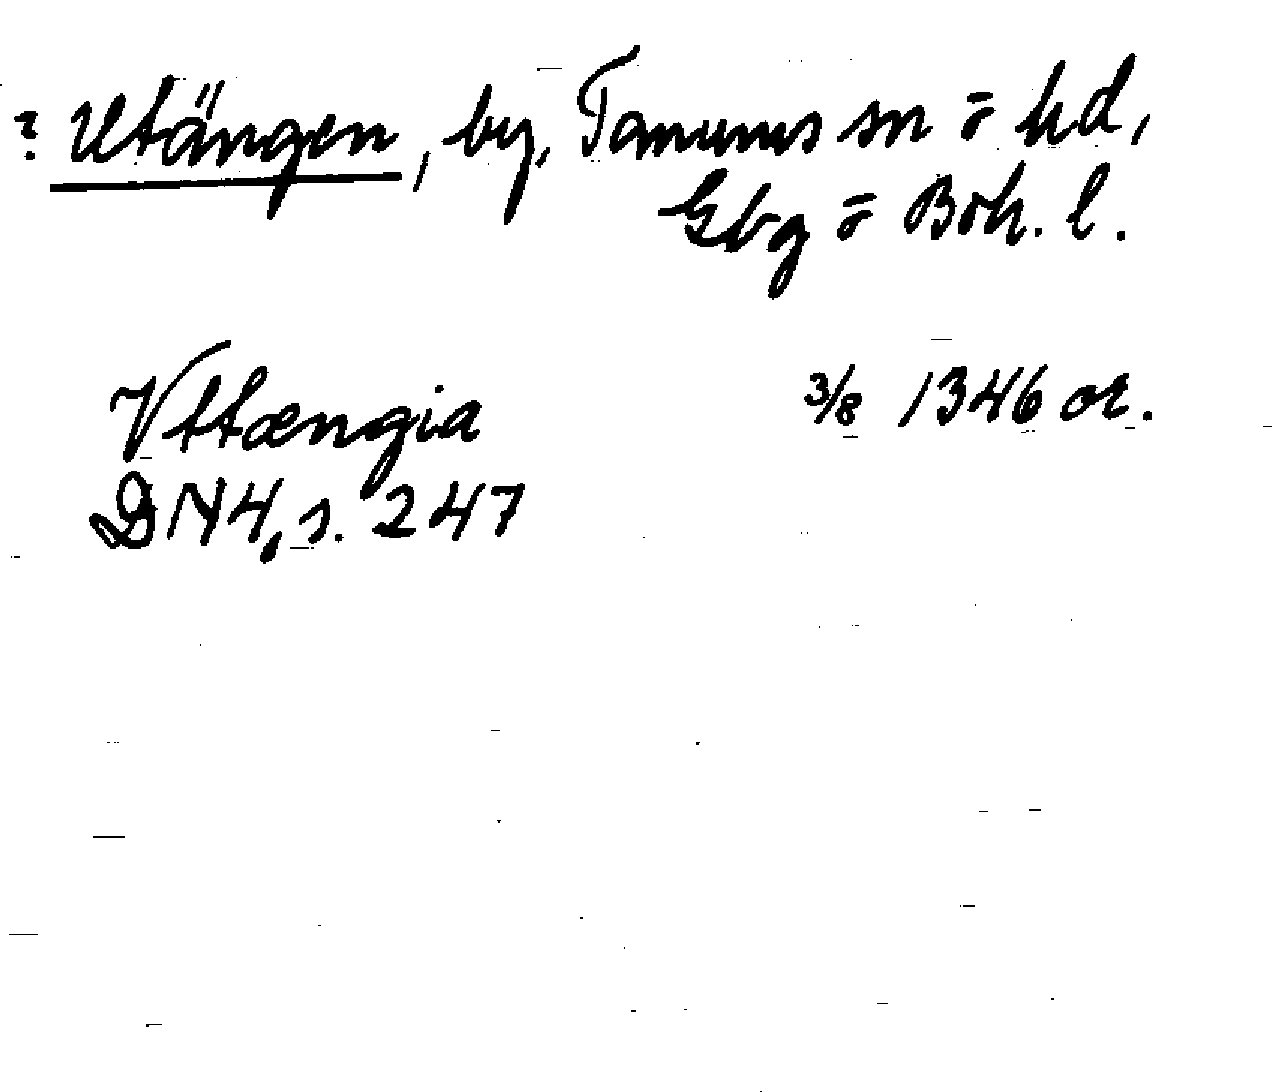 ? Utängen, by, Tanums sn o hd,
Gbg o Boh. l.
Vttængia 3/8 1346 or.
DN 4, s. 247